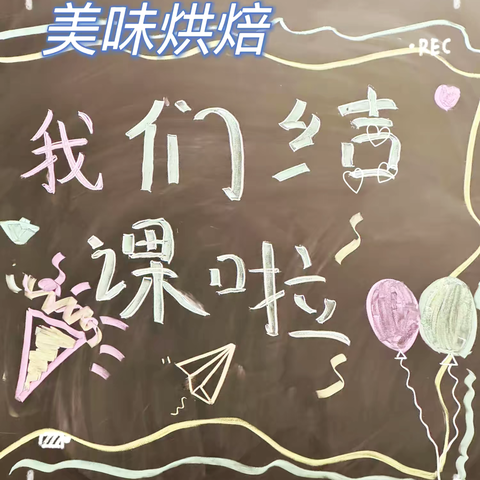 美味烘焙
•REC
我们结
课啦